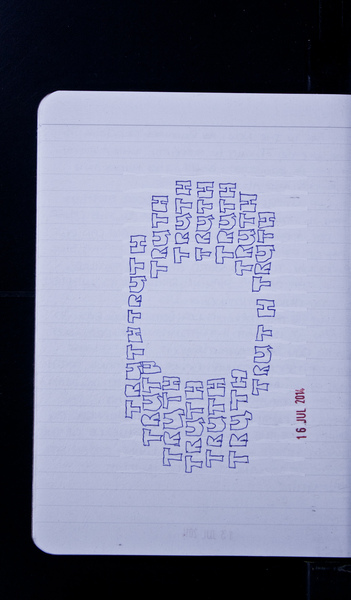 TRUTH TRUTH
TRUTH TRUTH
TRUTH TRUTH
TRUTH TRUTH
TRUTH TRUTH
TRUTH TRUTH
TRUTH TRUTH
16 JUL 2014